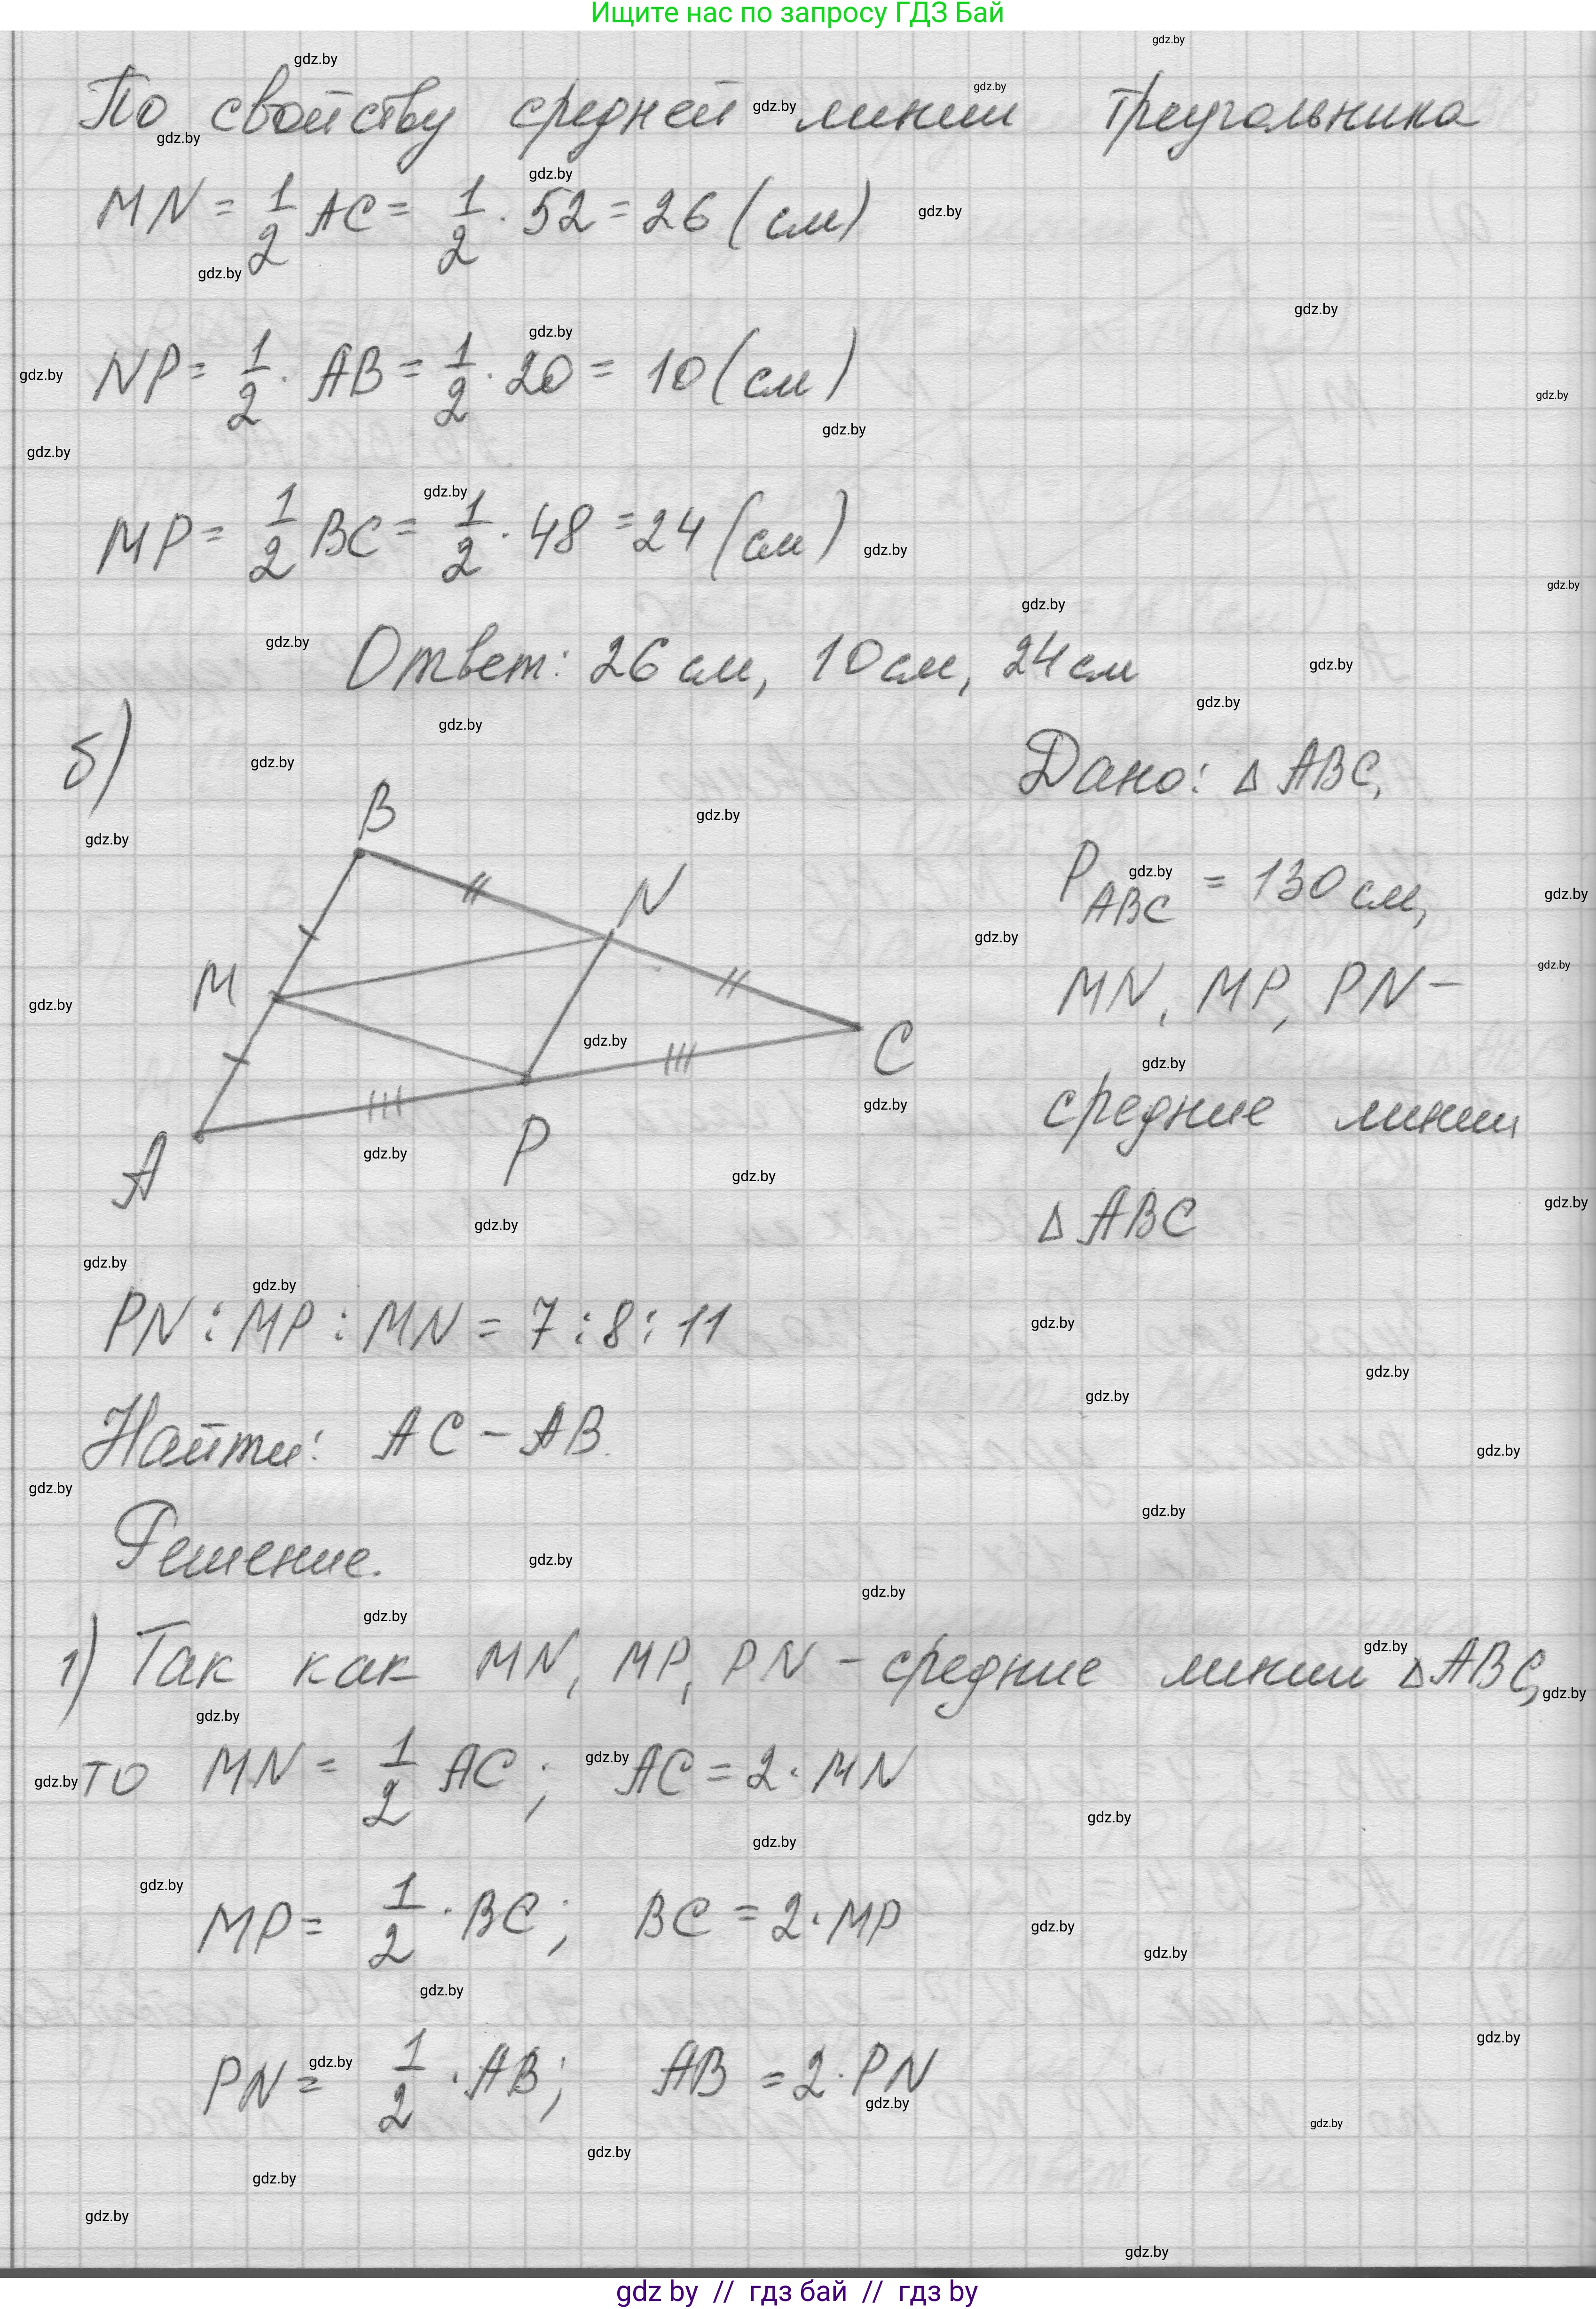 Ищите нас по запросу ГДЗ Бай
По свойству средней линии треугольника
MN = 1/2 AC = 1/2 · 52 = 26 (см)
NP = 1/2 · AB = 1/2 · 20 = 10 (см)
MP = 1/2 BC = 1/2 · 48 = 24 (см)
Ответ: 26 см, 10 см, 24 см
б)
Дано: △ ABC,
P ABC = 130 см,
MN, MP, PN –
средние линии
△ ABC
B
N
M
C
A
P
PN : MP : MN = 7 : 8 : 11
Найти: AC – AB.
Решение.
1) Так как MN, MP, PN – средние линии △ ABC,
то MN = 1/2 AC ; AC = 2 · MN
MP = 1/2 · BC ; BC = 2 · MP
PN = 1/2 · AB ; AB = 2 · PN
gdz.by
gdz by // гдз бай // гдз by